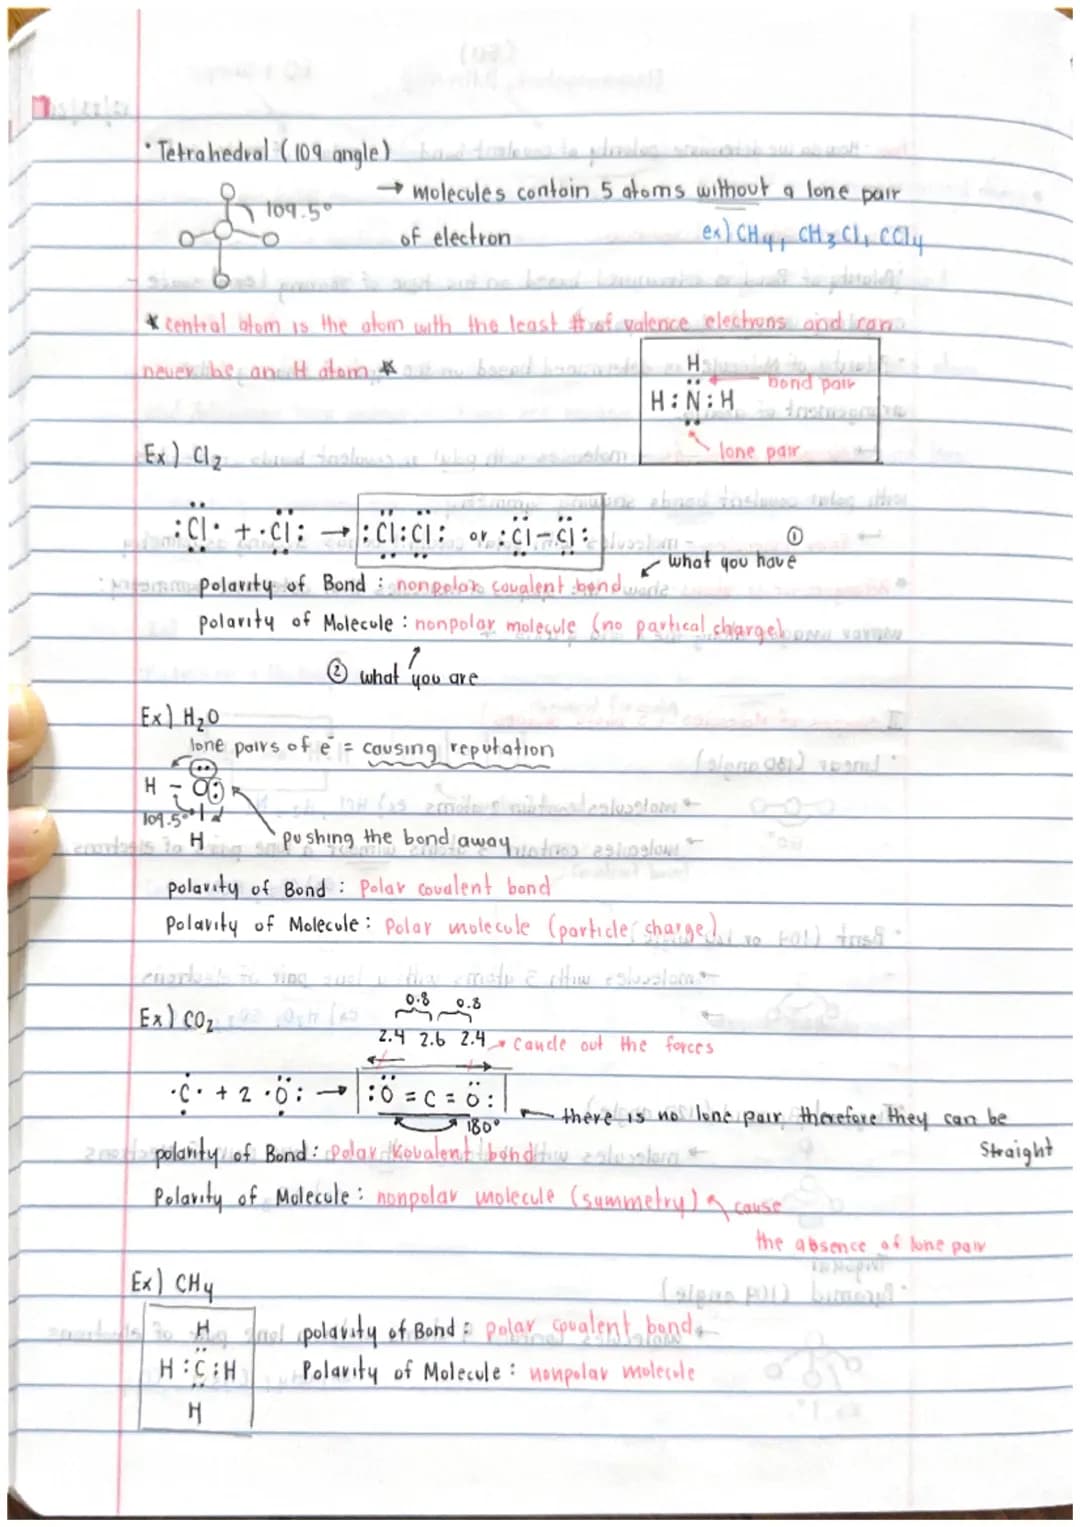 • Tetrahedral (109 angle)
109.5°
→ molecules contain 5 atoms without a lone pair
of electron
ex) CH4, CH3Cl, CCl4
* central atom is the atom with the least # of valence electrons and can
never be an H atom *
H
bond pair
H : N : H
lone pair
Ex) Cl2
:Cl· + ·Cl: → :Cl:Cl: or :Cl-Cl:
①
what you have
polarity of Bond : nonpolar covalent bond
polarity of Molecule : nonpolar molecule (no partical charge)
② what you are
Ex) H2O
lone pairs of e⁻ = causing reputation
H - O:
109.5°
H
pushing the bond away
polarity of Bond : Polar covalent bond
Polarity of Molecule : Polar molecule (particle charge)
Ex) CO2
0.8 0.8
2.4 2.6 2.4 → Cancle out the forces
·C· + 2 ·O: → :O = C = O:
180°
there is no lone pair, therefore they can be
Straight
polarity of Bond : Polar Kovalent bond
Polarity of Molecule : nonpolar molecule (symmetry)
cause
the absence of lone pair
Ex) CH4
H
H : C : H
H
polarity of Bond : polar covalent bond
Polarity of Molecule : nonpolar molecule